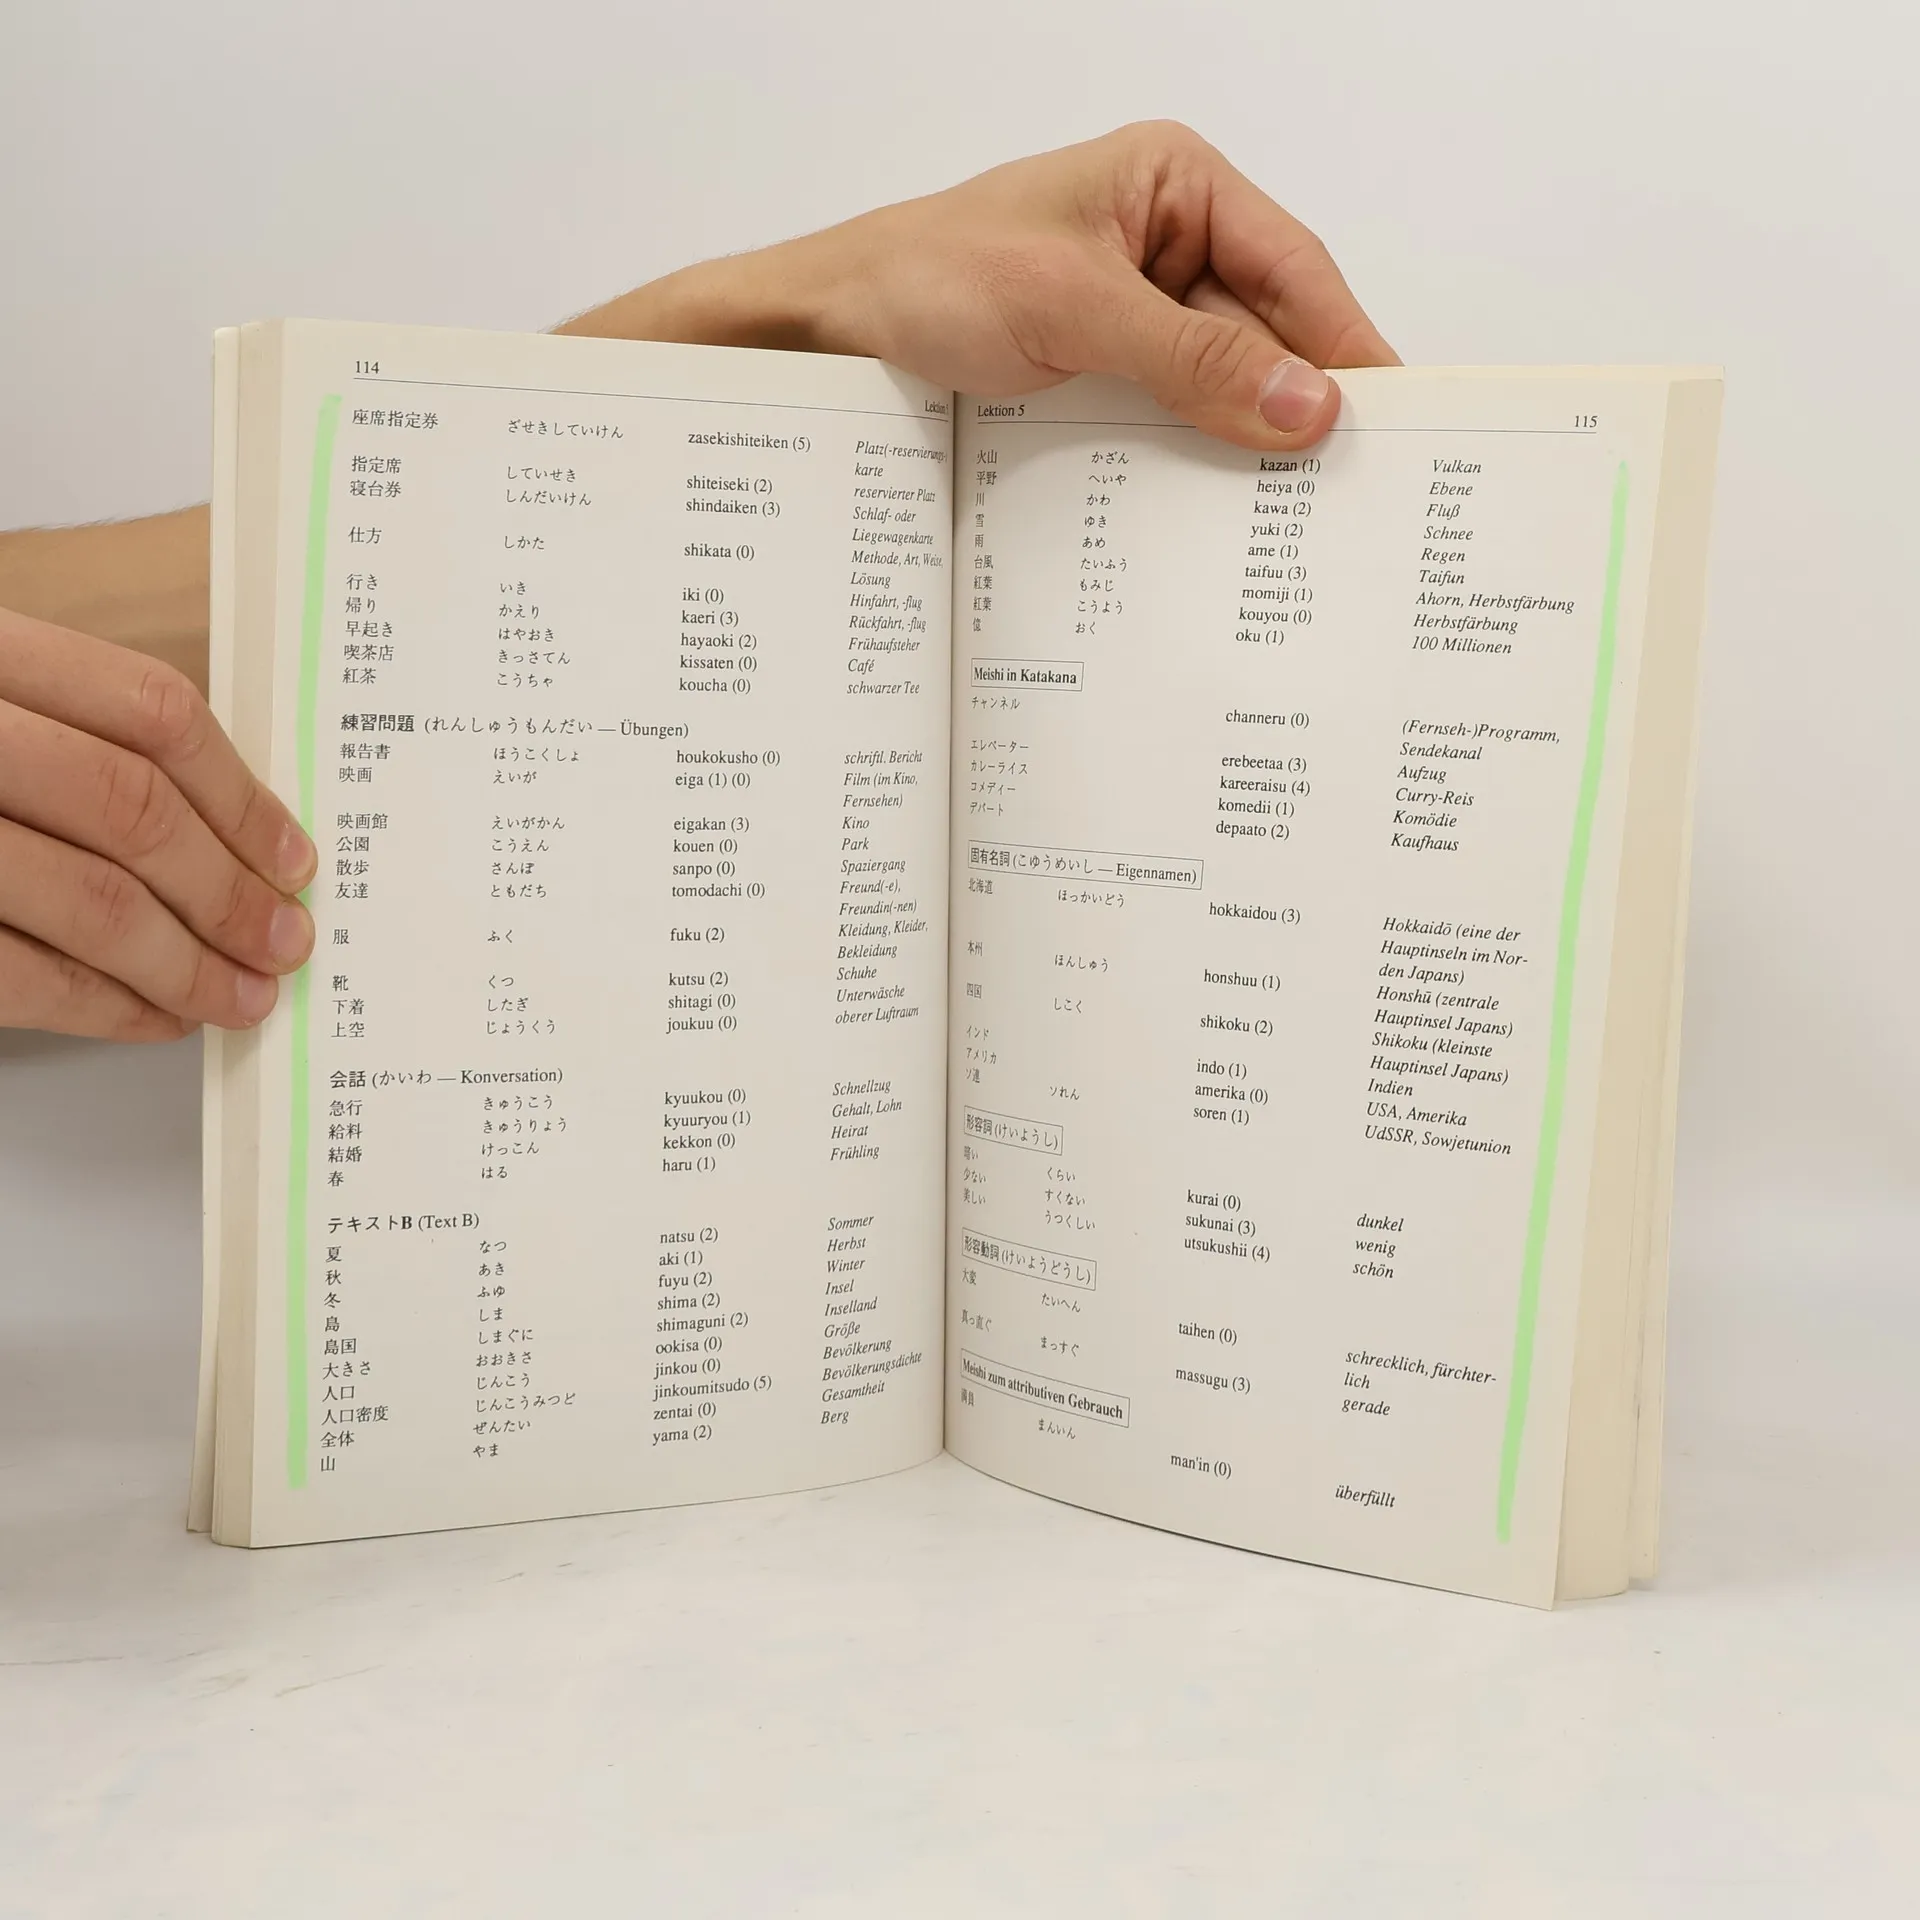 114
Lektion 5
座席指定券 ざせきしていけん zasekishiteiken (5) Platz(-reservierungs-)
karte
指定席 していせき shiteiseki (2) reservierter Platz
寝台券 しんだいけん shindaiken (3) Schlaf- oder
Liegewagenkarte
仕方 しかた shikata (0) Methode, Art, Weise,
Lösung
行き いき iki (0) Hinfahrt, -flug
帰り かえり kaeri (3) Rückfahrt, -flug
早起き はやおき hayaoki (2) Frühaufsteher
喫茶店 きっさてん kissaten (0) Café
紅茶 こうちゃ koucha (0) schwarzer Tee
練習問題 (れんしゅうもんだい — Übungen)
報告書 ほうこくしょ houkokusho (0) schriftl. Bericht
映画 えいが eiga (1) (0) Film (im Kino,
Fernsehen)
映画館 えいがかん eigakan (3) Kino
公園 こうえん kouen (0) Park
散歩 さんぽ sanpo (0) Spaziergang
友達 ともだち tomodachi (0) Freund(-e),
Freundin(-nen)
服 ふく fuku (2) Kleidung, Kleider,
Bekleidung
靴 くつ kutsu (2) Schuhe
下着 したぎ shitagi (0) Unterwäsche
上空 じょうくう joukuu (0) oberer Luftraum
会話 (かいわ — Konversation)
急行 きゅうこう kyuukou (0) Schnellzug
給料 きゅうりょう kyuuryou (1) Gehalt, Lohn
結婚 けっこん kekkon (0) Heirat
春 はる haru (1) Frühling
テキストB (Text B)
夏 なつ natsu (2) Sommer
秋 あき aki (1) Herbst
冬 ふゆ fuyu (2) Winter
島 しま shima (2) Insel
島国 しまぐに shimaguni (2) Inselland
大きさ おおきさ ookisa (0) Größe
人口 じんこう jinkou (0) Bevölkerung
人口密度 じんこうみつど jinkoumitsudo (5) Bevölkerungsdichte
全体 ぜんたい zentai (0) Gesamtheit
山 やま yama (2) Berg
Lektion 5
115
火山 かざん kazan (1) Vulkan
平野 へいや heiya (0) Ebene
川 かわ kawa (2) Fluß
雪 ゆき yuki (2) Schnee
雨 あめ ame (1) Regen
台風 たいふう taifuu (3) Taifun
紅葉 もみじ momiji (1) Ahorn, Herbstfärbung
紅葉 こうよう kouyou (0) Herbstfärbung
億 おく oku (1) 100 Millionen
Meishi in Katakana
チャンネル channeru (0) (Fernseh-)Programm,
Sendekanal
エレベーター erebeetaa (3) Aufzug
カレーライス kareeraisu (4) Curry-Reis
コメディー komedii (1) Komödie
デパート depaato (2) Kaufhaus
固有名詞 (こゆうめいし — Eigennamen)
北海道 ほっかいどう hokkaidou (3) Hokkaidō (eine der
Hauptinseln im Nor-
den Japans)
本州 ほんしゅう honshuu (1) Honshū (zentrale
Hauptinsel Japans)
四国 しこく shikoku (2) Shikoku (kleinste
Hauptinsel Japans)
インド indo (1) Indien
アメリカ amerika (0) USA, Amerika
ソ連 ソれん soren (1) UdSSR, Sowjetunion
形容詞 (けいようし)
暗い くらい kurai (0) dunkel
少ない すくない sukunai (3) wenig
美しい うつくしい utsukushii (4) schön
形容動詞 (けいようどうし)
大変 たいへん taihen (0) schrecklich, fürchter-
lich
真っ直ぐ まっすぐ massugu (3) gerade
Meishi zum attributiven Gebrauch
満員 まんいん man'in (0) überfüllt